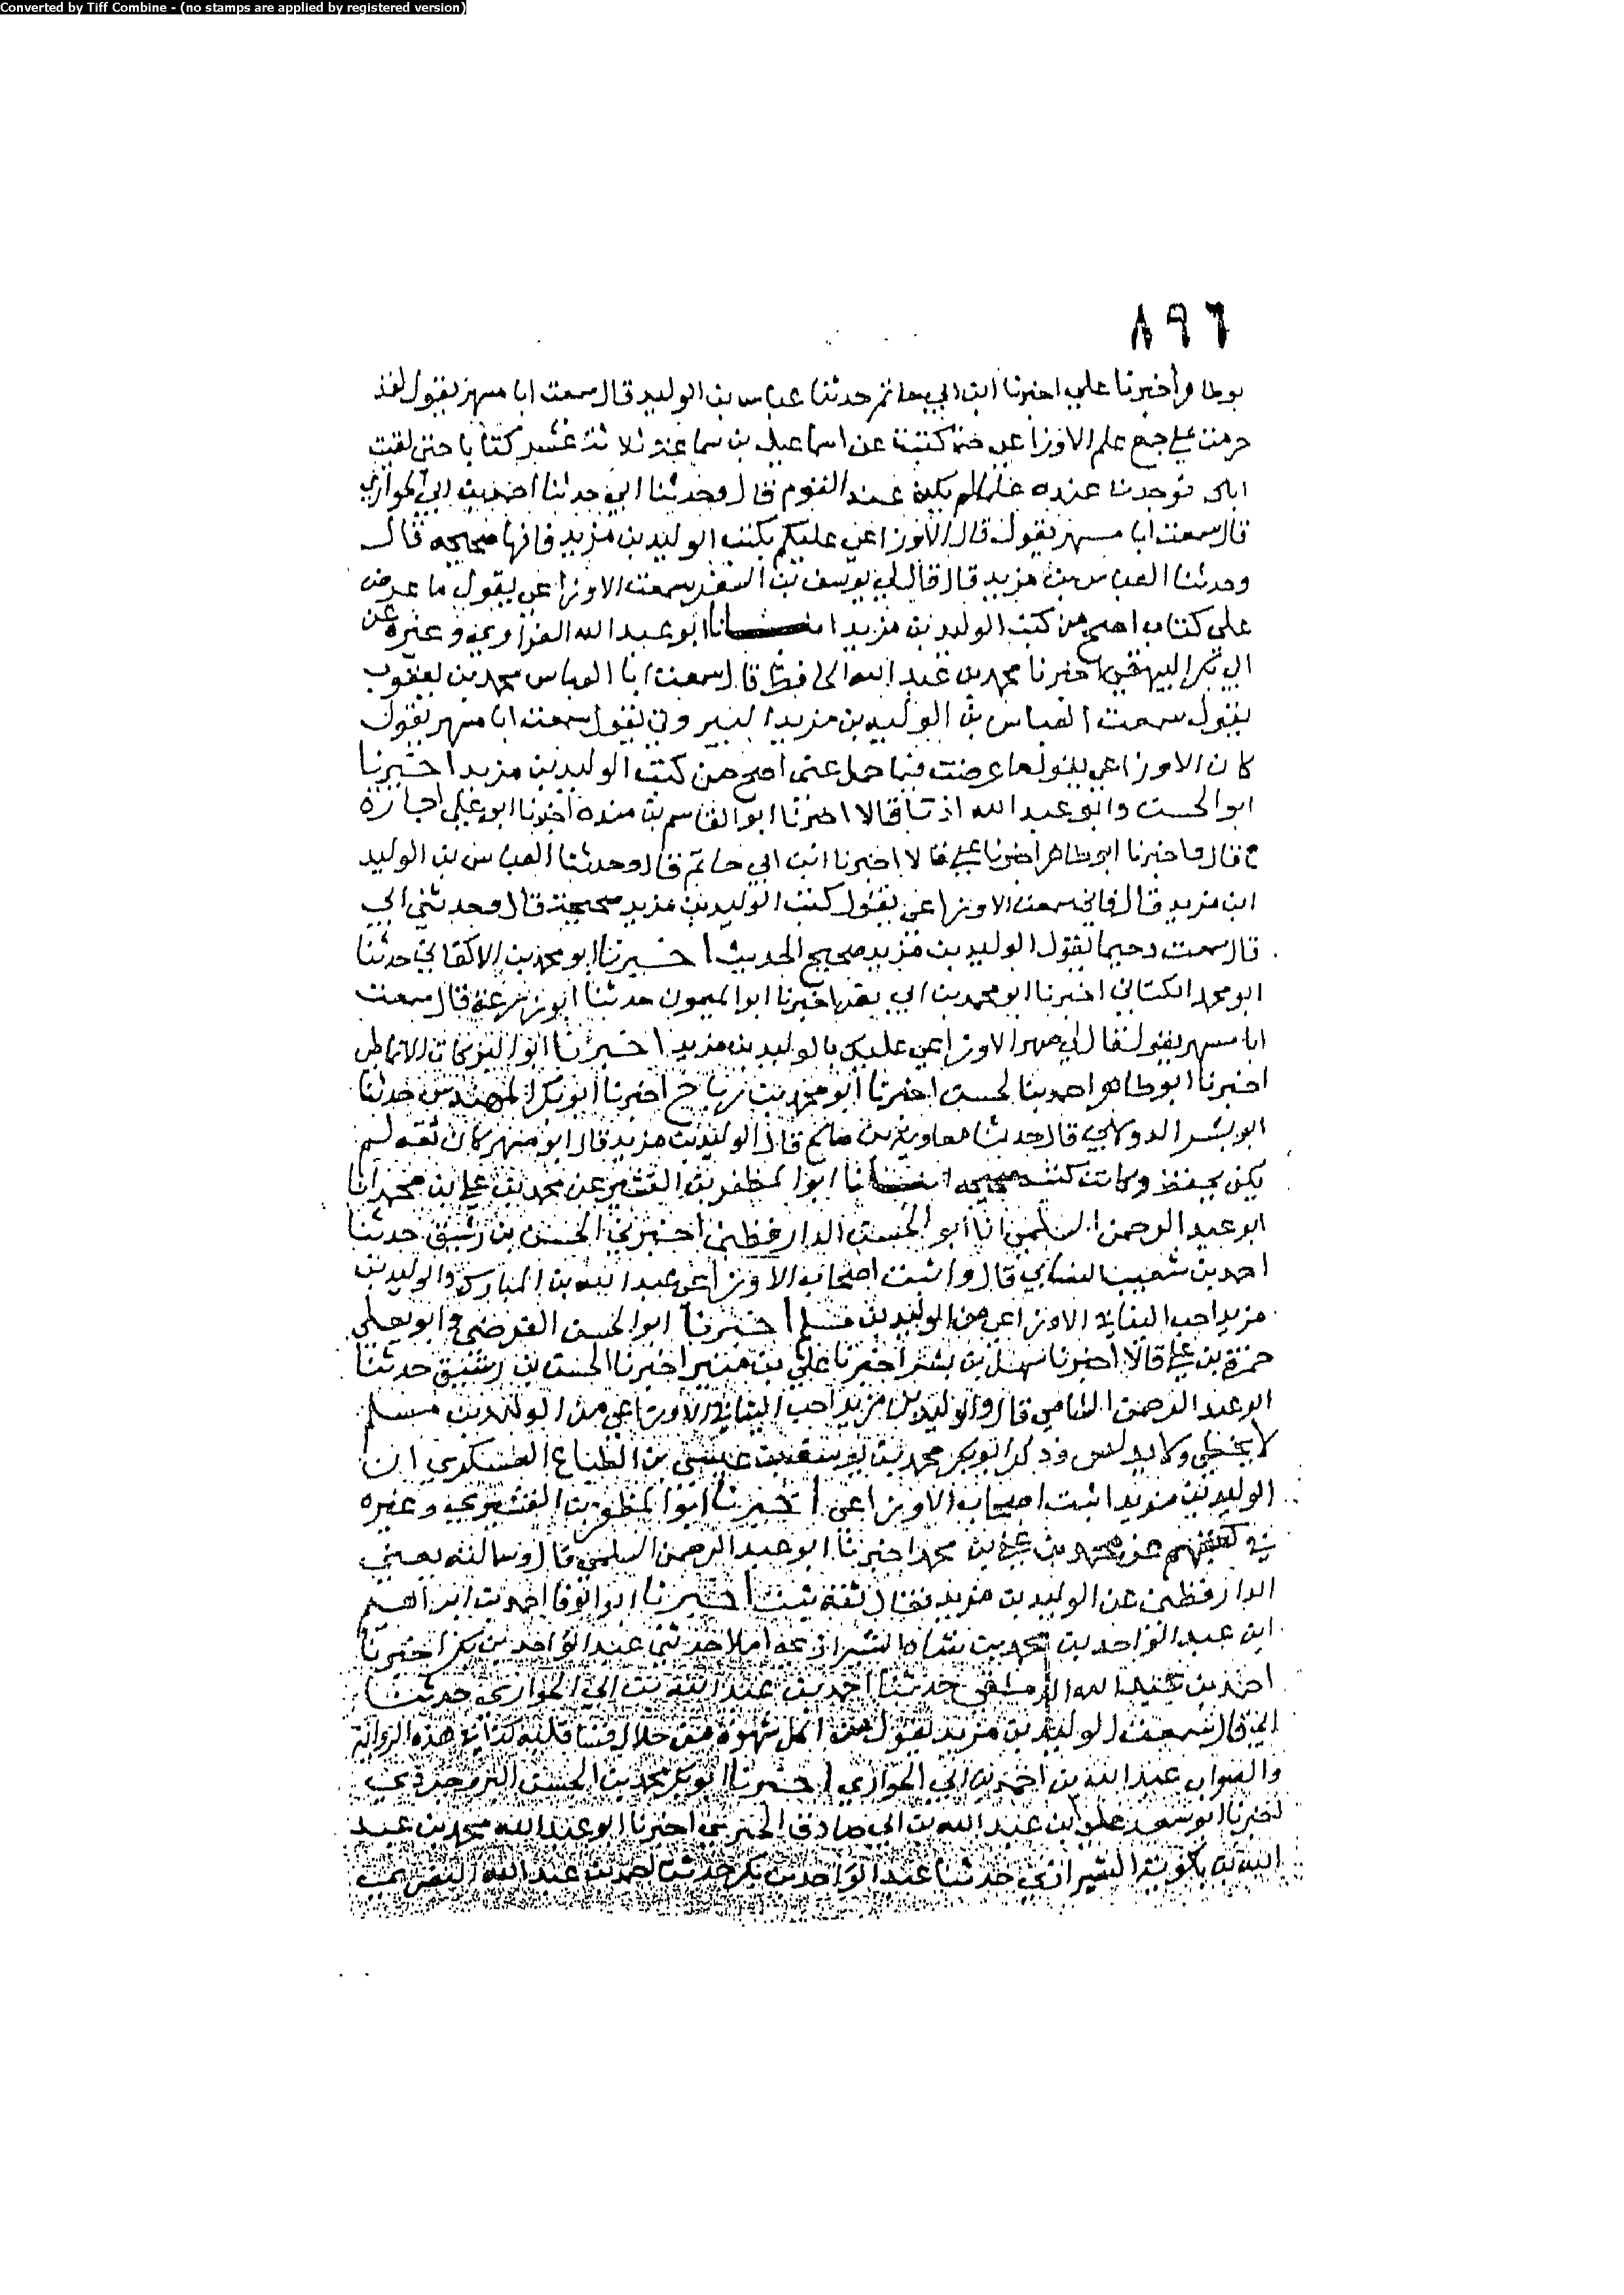 Converted by Tiff Combine - (no stamps are applied by registered version)
٨٩٦
بوطا واخبرنا علي اخبرنا ابن ابي حاتم حدثنا عباس بن الوليد قال سمعت ابا مسهر يقول لقد
حرصت على جمع علم الاوزاعي حتى كتبت عن اسماعيل بن سماعة ثلاثة عشر كتابا حتى لقيت
اباك فوجدت عنده علما لم يكن عند القوم قال وحدثنا ابي حدثنا احمد بن ابي الحواري
قال سمعت ابا مسهر يقول قال الاوزاعي عليكم بكتب الوليد بن مزيد فانها صحيحه قال
وحدثنا العباس بن مزيد قال قال لي يوسف بن السفر سمعت الاوزاعي يقول ما عرض
علي كتاب اصح من كتب الوليد بن مزيد انبانا ابو عبد الله الفراوي وغيره عن
ابي بكر البيهقي اخبرنا محمد بن عبد الله الحافظ قال سمعت ابا العباس محمد بن يعقوب
يقول سمعت العباس بن الوليد بن مزيد البيروتي يقول سمعت ابا مسهر يقول
كان الاوزاعي يقول ما عرضت فيما حمل عني اصح من كتب الوليد بن مزيد اخبرنا
ابو الحسن وابو عبد الله اذنا قالا اخبرنا ابو القاسم بن منده اخبرنا ابو علي اجازة
ح قال واخبرنا ابو طاهر اخبرنا علي قالا اخبرنا ابن ابي حاتم قال وحدثنا العباس بن الوليد
ابن مزيد قال سمعت الاوزاعي يقول كتب الوليد بن مزيد صحيحة قال وحدثني ابي
قال سمعت دحيما يقول الوليد بن مزيد صحيح الحديث اخبرنا ابو محمد بن الاكفاني حدثنا
ابو محمد الكتاني اخبرنا ابو محمد بن ابي نصر اخبرنا ابو الميمون حدثنا ابو زرعة قال سمعت
ابا مسهر يقول قال لي الاوزاعي عليك بالوليد بن مزيد اخبرنا ابو البركات الانماطي
اخبرنا ابو طاهر احمد بن الحسن اخبرنا ابو محمد بن رباح اخبرنا ابو بكر المهندس حدثنا
ابو بشر الدولابي قال حدثنا معاوية بن صالح قال الوليد بن مزيد قال ابو مسهر كان ثقه لم
يكن يحفظ وكانت كتبه صحيحه انبانا ابو المظفر بن القشيري عن محمد بن علي بن محمد انا
ابو عبد الرحمن السلمي انا ابو الحسن الدارقطني اخبرني الحسن بن رشيق حدثنا
احمد بن شعيب النساي قال واثبت اصحاب الاوزاعي عبد الله بن المبارك والوليد بن
مزيد احب الينا في الاوزاعي من الوليد بن مسلم اخبرنا ابو الحسن الفرضي وابو يعلى
حمزة بن علي قالا اخبرنا سهل بن بشر اخبرنا علي بن منير اخبرنا الحسن بن رشيق حدثنا
ابو عبد الرحمن النسائي قال والوليد بن مزيد احب الينا في الاوزاعي من الوليد بن مسلم
لا يخطي ولا يدلس وذكر ابو بكر محمد بن يوسف بن عيسى بن الطباع العسكري ان
الوليد بن مزيد اثبت اصحاب الاوزاعي اخبرنا ابو المظفر بن القشيري وغيره
في كتبهم عن محمد بن علي بن محمد اخبرنا ابو عبد الرحمن السلمي قال وسالته يعني
الدارقطني عن الوليد بن مزيد فقال ثقة ثبت اخبرنا ابو الوفا احمد بن ابراهيم
ابن عبد الواحد بن محمد بن شاه الشيرازي املا حدثني عبد الواحد بن بكر اخبرنا
احمد بن عبد الله حدثنا احمد بن عبد الله بن ابي الحواري حدثنا
ابي قال سمعت الوليد بن مزيد يقول من اكل شهوة من حلال قسا قلبه كذا في هذه الرواية
والصواب عبد الله بن احمد بن ابي الحواري اخبرنا ابو بكر محمد بن الحسين
اخبرنا ابو سعد علي بن عبد الله بن ابي صادق الحيري اخبرنا ابو عبد الله محمد بن عبد
الله بن باكويه الشيرازي حدثنا عبد الواحد بن بكر حدثنا احمد بن عبد الله